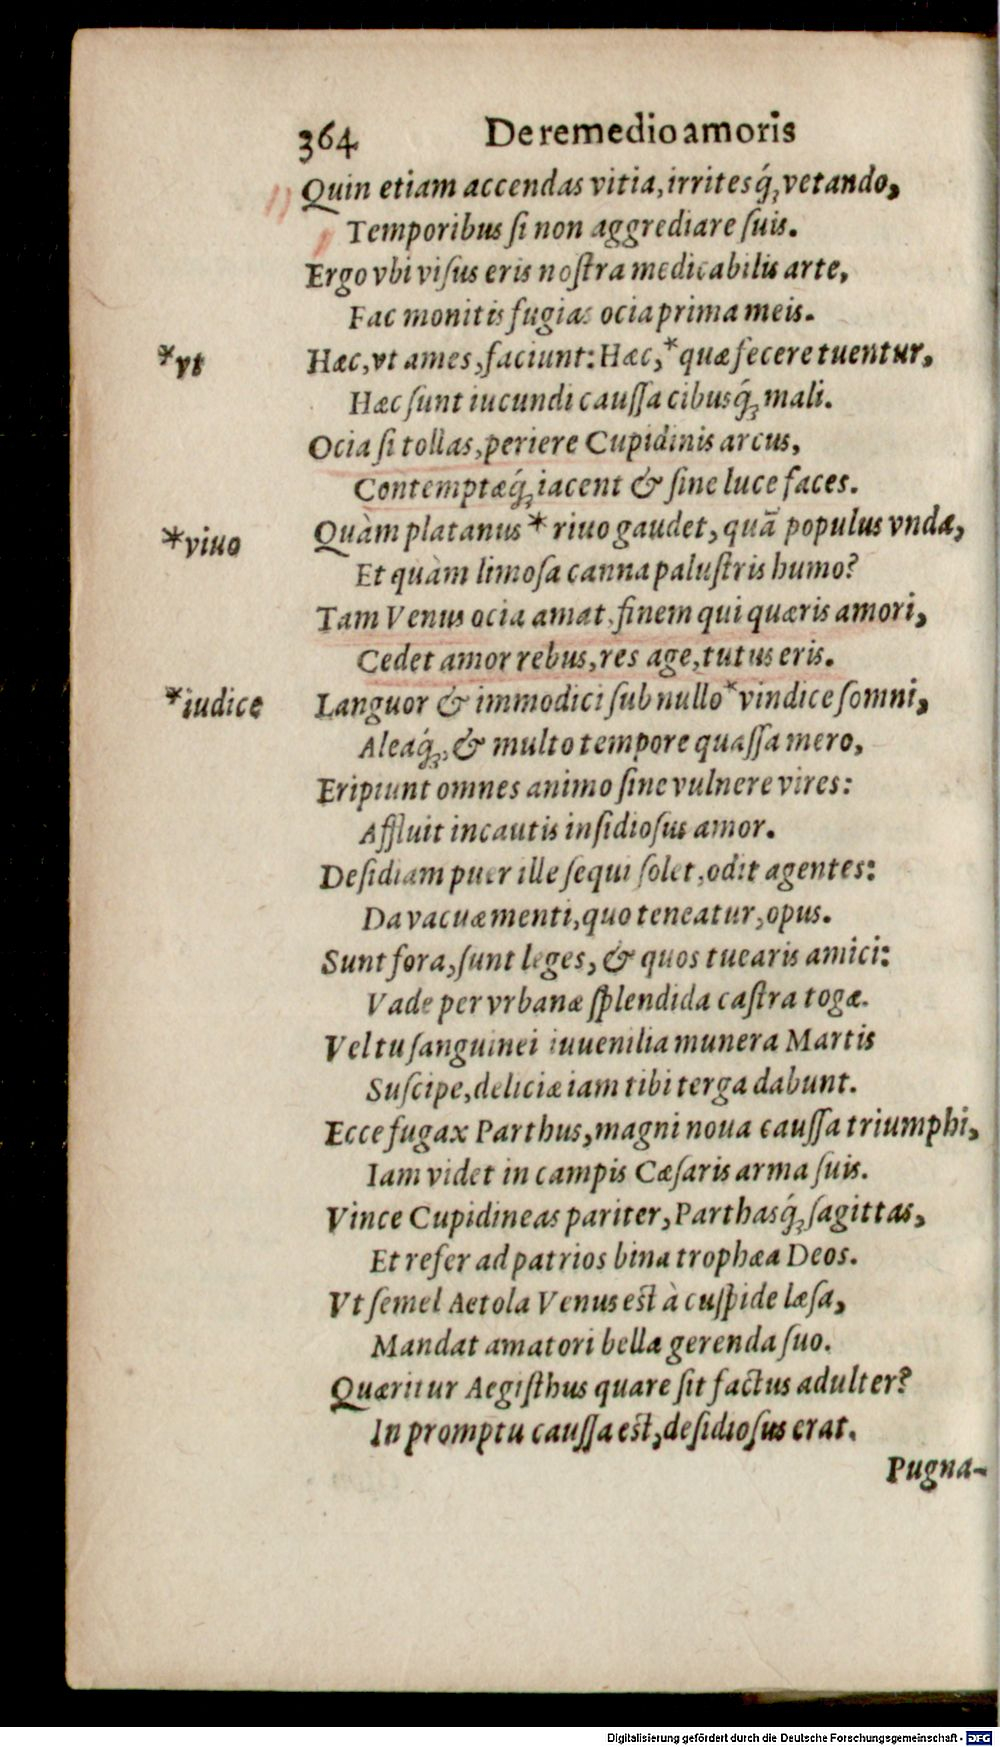 364 De remedio amoris
Quin etiam accendas vitia, irritesq́; vetando,
Temporibus ſi non aggrediare ſuis.
Ergo vbi viſus eris noſtra medicabilis arte,
Fac monitis fugias ocia prima meis.
*vt
Hæc, vt ames, faciunt: Hæc, * quæ fecere tuentur,
Hæc ſunt iucundi cauſſa cibusq́; mali.
Ocia ſi tollas, periere Cupidinis arcus,
Contemptæq́; iacent & ſine luce faces.
*viuo
Quàm platanus * riuo gaudet, quā populus vnda,
Et quàm limoſa canna paluſtris humo?
Tam Venus ocia amat. finem qui quæris amori,
Cedet amor rebus, res age, tutus eris.
*iudice
Languor & immodici ſub nullo * vindice ſomni,
Aleaq́;, & multo tempore quaſſa mero,
Eripiunt omnes animo ſine vulnere vires:
Affluit incautis inſidioſus amor.
Deſidiam puer ille ſequi ſolet, odit agentes:
Da vacuæ menti, quo teneatur, opus.
Sunt fora, ſunt leges, & quos tuearis amici:
Vade per vrbanæ ſplendida caſtra togæ.
Vel tu ſanguinei iuuenilia munera Martis
Suſcipe, deliciæ iam tibi terga dabunt.
Ecce fugax Parthus, magni noua cauſſa triumphi,
Iam videt in campis Cæſaris arma ſuis.
Vince Cupidineas pariter, Parthasq́; ſagittas,
Et refer ad patrios bina trophæa Deos.
Vt ſemel Aetola Venus eſt à cuſpide læſa,
Mandat amatori bella gerenda ſuo.
Quæritur Aegiſthus quare ſit factus adulter?
In promptu cauſſa eſt, deſidioſus erat.
Pugna-
Digitalisierung gefördert durch die Deutsche Forschungsgemeinschaft - DFG